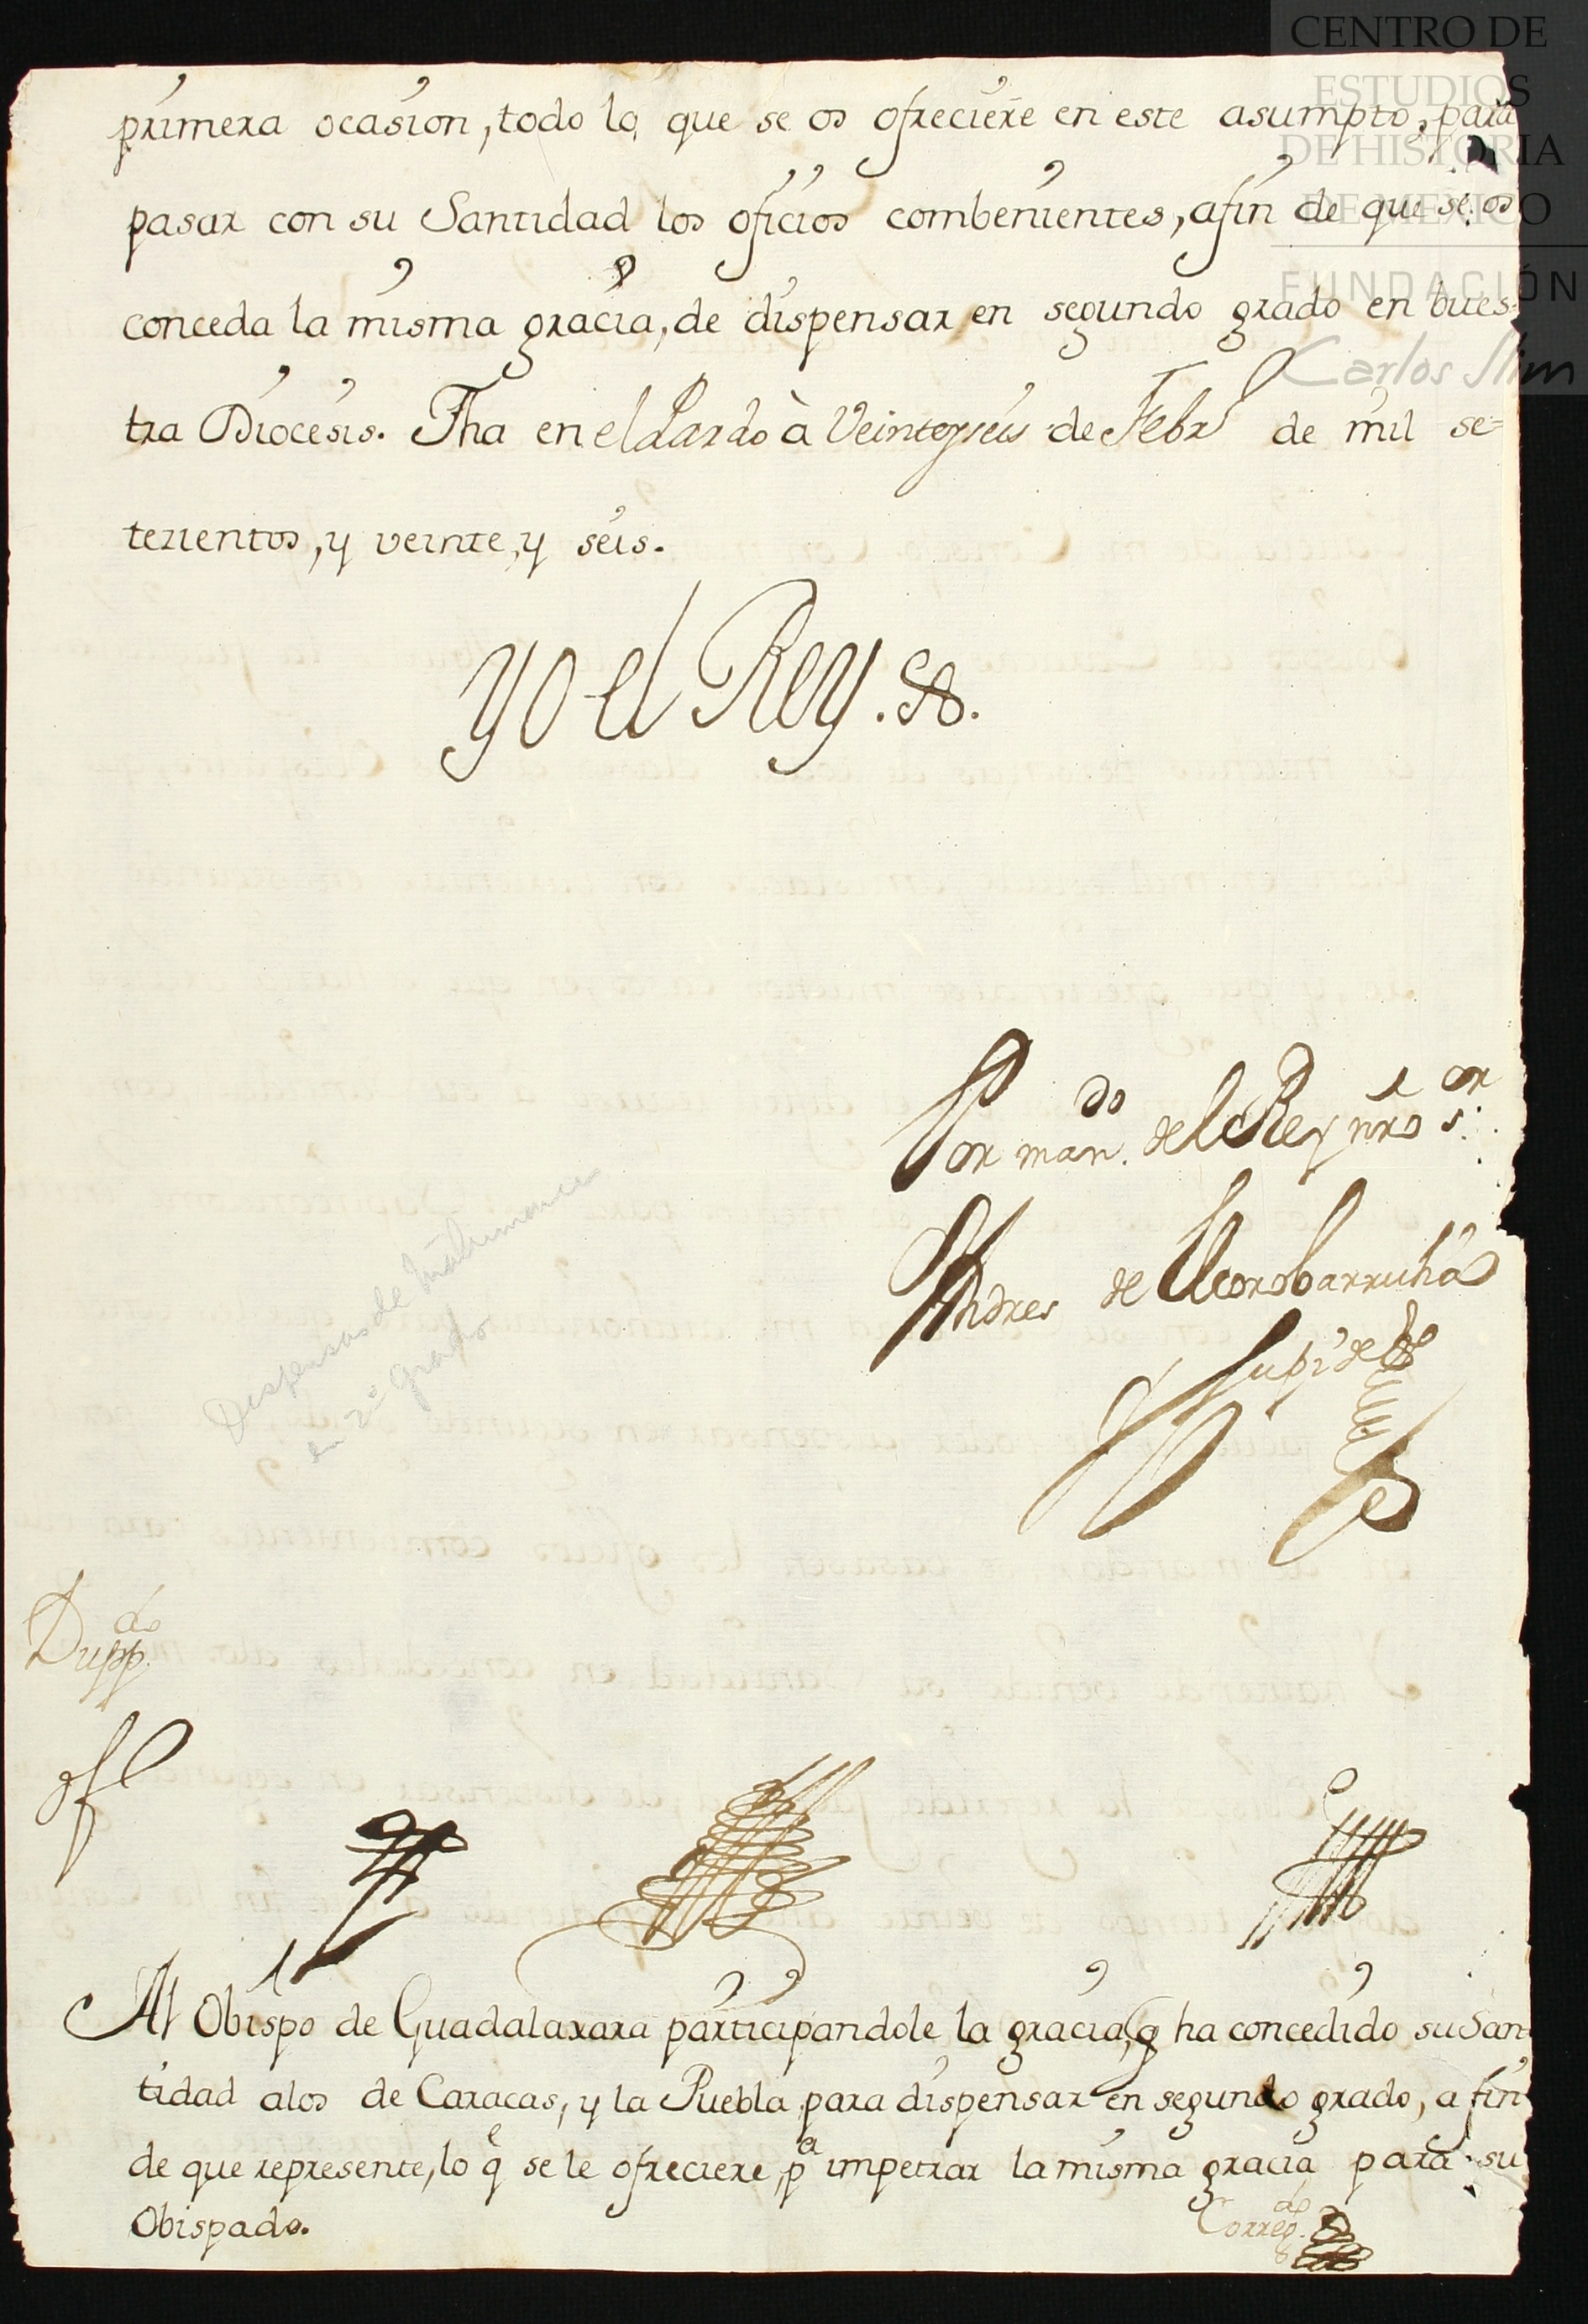 CENTRO DE
ESTUDIOS
DE HISTORIA
DE MÉXICO
FUNDACIÓN
Carlos Slim
primera ocasion, todo lo que se os ofreciere en este asumpto, para
pasar con su Santidad los oficios combenientes, afin de que se os
conceda la misma gracia, de dispensar en segundo grado en bues-
tra Diocesis. Fha en el Pardo à Veinte y seis de Febrº de mil se=
tezientos, y veinte, y seis.
Yo el Rey.
Por man.do del Rey nrō s.or
Andres de
Dispensas de Matrimonio
en 2º grado
Dupp.do
Al Obispo de Guadalaxara participandole la gracia, q ha concedido su San-
tidad alos de Caracas, y la Puebla para dispensar en segundo grado, a fin
de que represente, lo q̄ se le ofreciere, pª impetrar la misma gracia para su
Obispado.
Correg.do